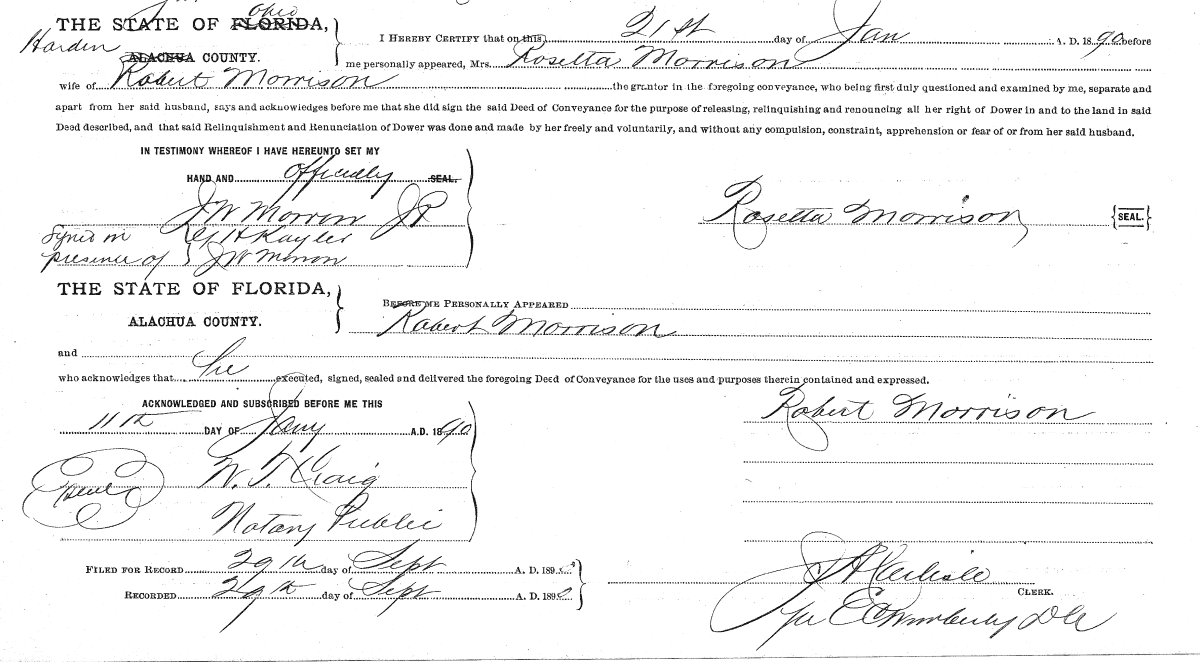 Ohio
THE STATE OF FLORIDA,
Harden
ALACHUA COUNTY.
I HEREBY CERTIFY that on this 21st day of Jan A. D. 1890 before
me personally appeared, Mrs. Rosetta Morrison
wife of Robert Morrison the grantor in the foregoing conveyance, who being first duly questioned and examined by me, separate and
apart from her said husband, says and acknowledges before me that she did sign the said Deed of Conveyance for the purpose of releasing, relinquishing and renouncing all her right of Dower in and to the land in said
Deed described, and that said Relinquishment and Renunciation of Dower was done and made by her freely and voluntarily, and without any compulsion, constraint, apprehension or fear of or from her said husband.
IN TESTIMONY WHEREOF I HAVE HEREUNTO SET MY
HAND AND officially SEAL.
J W Morrow JP
Rosetta Morrison {SEAL.}
Signed in
presence of } J W Morrow
THE STATE OF FLORIDA,
ALACHUA COUNTY.
BEFORE ME PERSONALLY APPEARED
Robert Morrison
and
who acknowledges that he executed, signed, sealed and delivered the foregoing Deed of Conveyance for the uses and purposes therein contained and expressed.
ACKNOWLEDGED AND SUBSCRIBED BEFORE ME THIS
11th DAY OF Jany A.D. 1890
Robert Morrison
Seal
W. T. Craig
Notary Public
FILED FOR RECORD 29th day of Sept A. D. 189
RECORDED 29th day of Sept A. D. 1890
J A Carlisle
CLERK.
DC